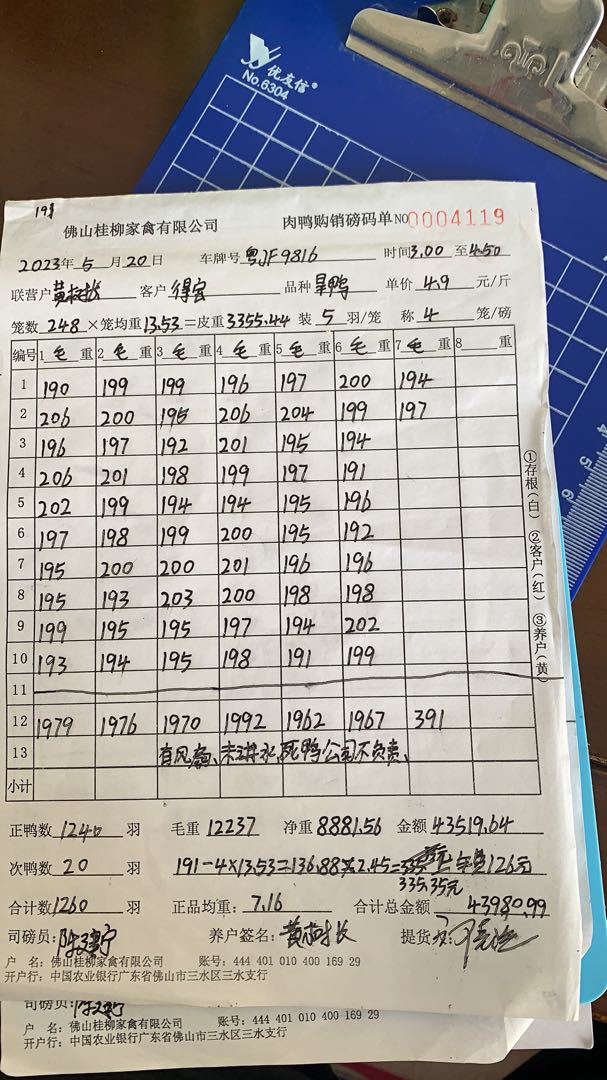 优友信®
No.6304
佛山桂柳家禽有限公司 肉鸭购销磅码单 NO 0004119
2023年 5 月 20 日 车牌号 粤JF9816 时间 3.00 至 4.50
联营户 黄树长 客户 得宝 品种 旱鸭 单价 4.9 元/斤
笼数 248 ×笼均重 13.53 =皮重 3355.44 装 5 羽/笼 称 4 笼/磅
编号 1 毛 重 2 毛 重 3 毛 重 4 毛 重 5 毛 重 6 毛 重 7 毛 重 8 重
1 190 199 199 196 197 200 194
2 206 200 195 206 204 199 197
3 196 197 192 201 195 194
4 206 201 198 199 197 191
5 202 199 194 194 195 196
6 197 198 199 200 195 192
7 195 200 200 201 196 196
8 195 193 203 200 198 198
9 199 195 195 197 194 202
10 193 194 195 198 191 199
11
12 1979 1976 1970 1992 1962 1967 391
13 有风扇、未进水,死鸭公司不负责、
小计
①存根(白) ②客户(红) ③养户(黄)
正鸭数 1240 羽 毛重 12237 净重 8881.56 金额 43519.64
次鸭数 20 羽 191-4×13.53=136.88×2.45= 126元
335.35元
合计数 1260 羽 正品均重: 7.16 合计总金额 43980.99
司磅员: 养户签名: 黄树长 提货
户 名: 佛山桂柳家禽有限公司 账号: 444 401 010 400 169 29
开户行: 中国农业银行广东省佛山市三水区三水支行
司磅员:
户 名: 佛山桂柳家禽有限公司 账号: 444 401 010 400 169 29
开户行: 中国农业银行广东省佛山市三水区三水支行